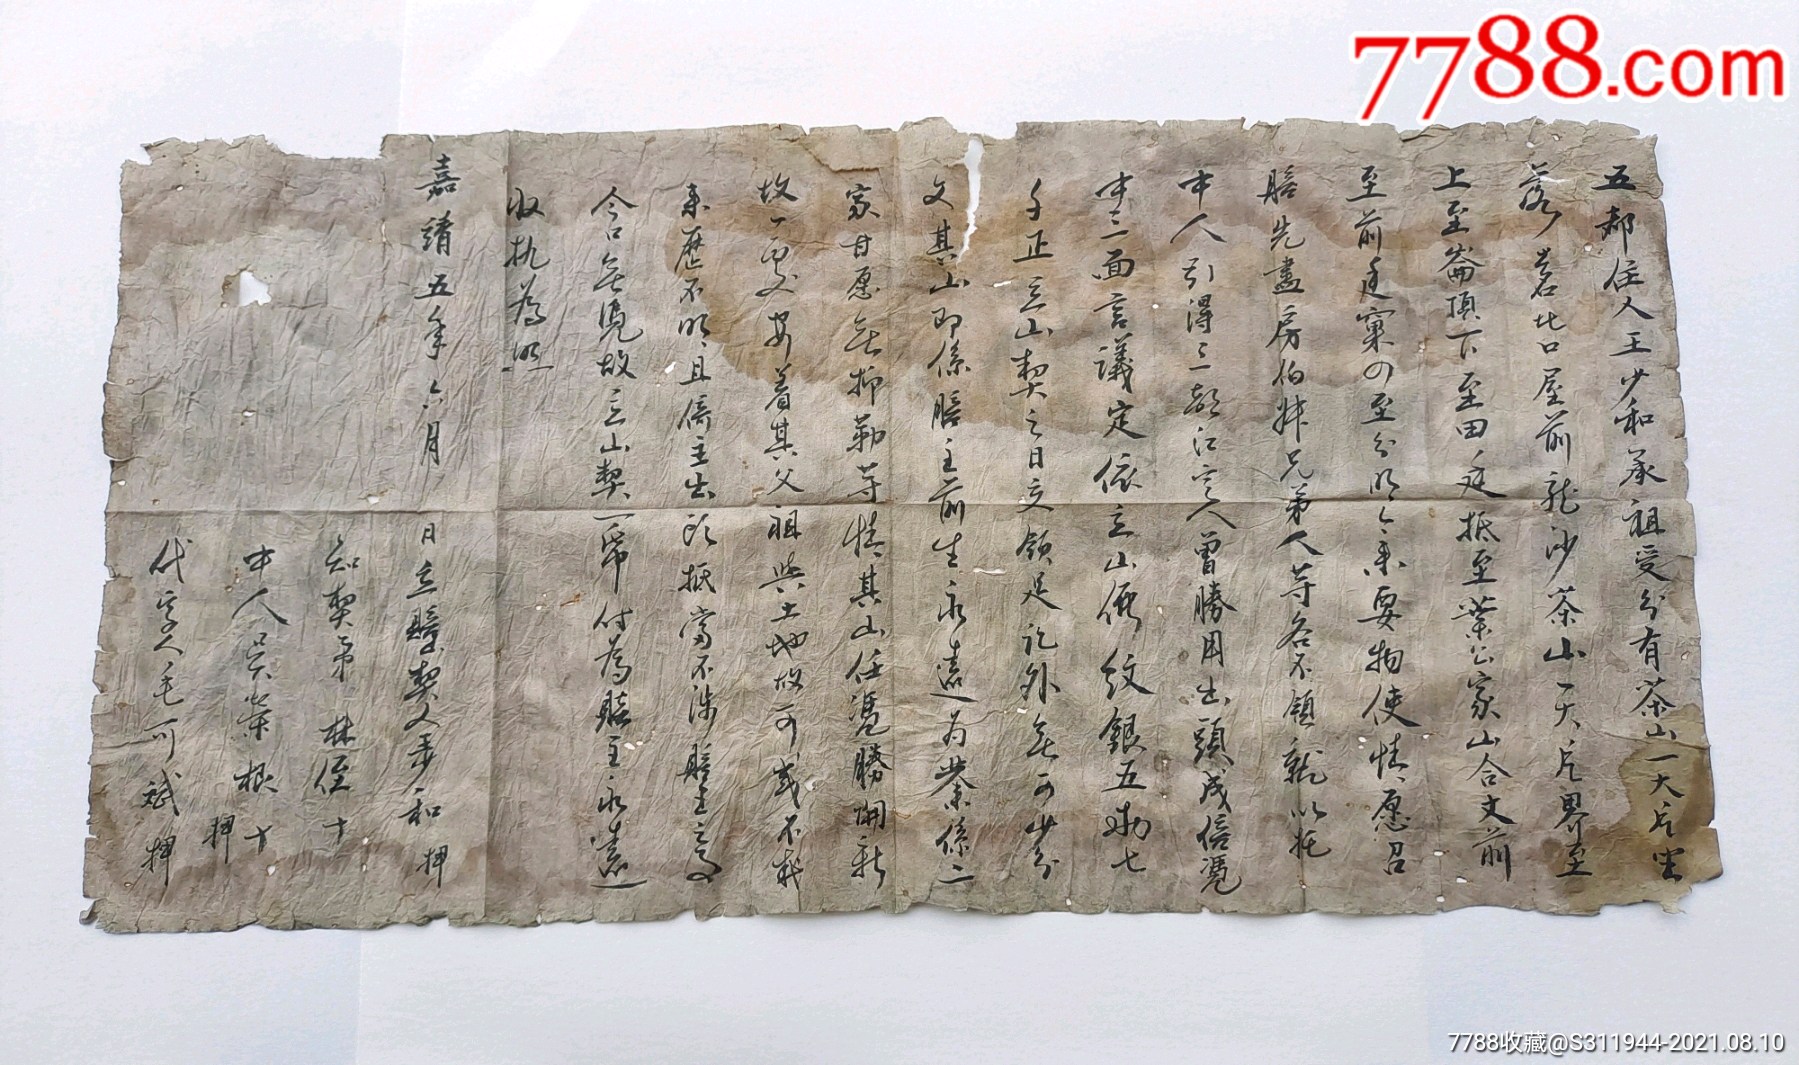 7788.com
五都住人王步和承祖受分有茶山一大片坐
落 茗 口屋前 沙茶山一大片界至
上至崙頂下至田 抵至葉公家山合文前
至前 窠四至分明今来要物使情愿召
賠先盡房伯叔兄弟人等各不領就以托
中人引得三都江 人曾勝困出頭成信憑
中三面言議定依立山價紋銀五 七
手正立山契之日交領足訖外無 少分
文其山即係賠主前 永遠为業係二
家甘愿無抑勒等情其山任憑勝 
故一 安着其父祖與土地故 或不
来歷不明且係主出 抵當不涉賠主之
今口無憑故立山契一帋付為賠主永遠
收执為照
嘉靖五年六月 日立賠契人步和 押
知契弟 林 十
中人吳 根 十
押
代字人毛可斌 押
7788收藏@S311944-2021.08.10